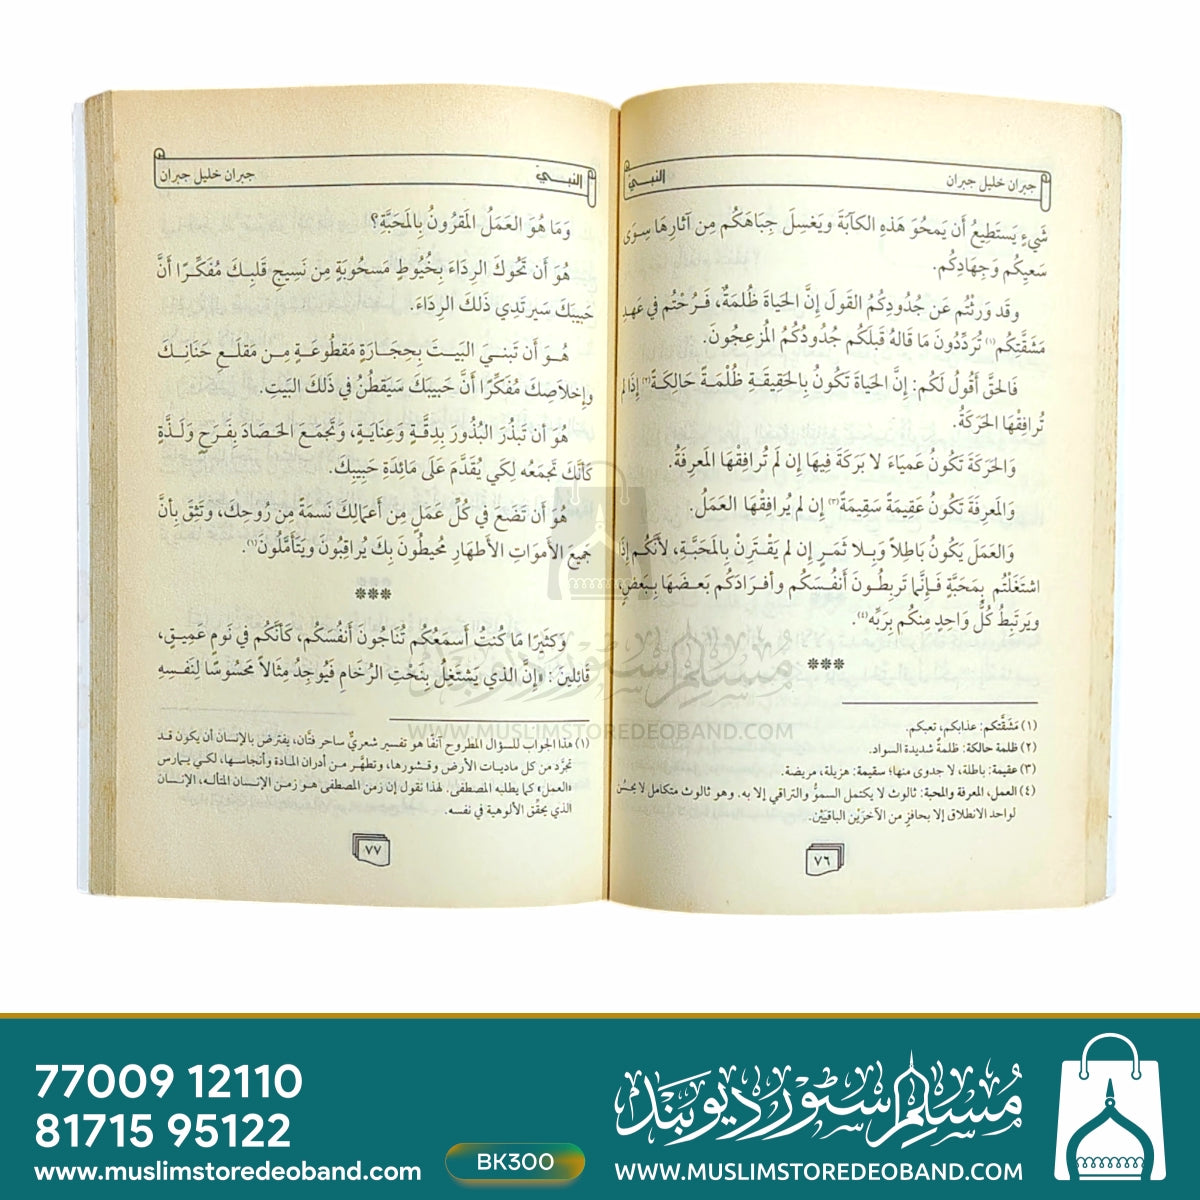 جبران خليل جبران
النبـــي
شَيءٍ يَستَطِيعُ أَن يَمحُوَ هَذِهِ الكَآبَةَ ويَغسِلَ جِبَاهَكُم مِن آثارِهَا سِوَى
سَعيِكُم وَجِهَادِكُم.
وقَد وَرِثْتُم عَن جُدُودِكُمُ القَولَ إنَّ الحَيَاةَ ظُلمَةٌ، فَـرُحْتُم في عَهدِ
مَشَقَّتِكُم(١) تُرَدِّدُونَ مَا قَالَهُ قَبلَكُم جُدُودُكُمُ المُزعِجُونَ.
فَالحَقَّ أَقُولُ لَكُم: إنَّ الحَيَاةَ تَكُونُ بِالحَقِيقَةِ ظُلْمَةً حَالِكَةً(٢) إِذَا لم
تُرافِقْهَا الحَرَكَةُ.
وَالحَرَكَةَ تَكُونُ عَمياءَ لا بَرَكَةَ فِيهَا إن لَم تُرافِقْهَا المَعرِفَةُ.
وَالمَعرِفَةَ تَكُونُ عَقِيمَةً سَقِيمَةً(٣) إن لم يُرافِقْهَا العَمَلُ.
وَالعَمَلَ يَكُونُ بَاطِلاً وَبِـلا ثَمَـرٍ إن لم يَقْـتَرِنْ بِالمَحَبَّـةِ، لأَنَّكُـم إذَا
اشتَغَلْتُم بِمَحَبَّةٍ فَـإنَّما تَربِطُـونَ أَنفُسَـكُم وأَفـرَادَكُم بَعـضَهَا بِـبَعضٍ،
ويَرتَبِطُ كُلُّ وَاحِدٍ مِنكُم بِرَبِّه(٤).
***
(١) مَشَقَّتكم: عذابكم، تعبكم.
(٢) ظلمة حالكة: ظلمةٌ شديدة السواد.
(٣) عقيمة: باطلة، لا جدوى منها؛ سقيمة: هزيلة، مريضة.
(٤) العمل، المعرفة والمحبة: ثالوث لا يكتمل السموُّ والتراقي إلا به. وهو ثالوث متكامل لا يحسُن
لواحد الانطلاق إلا بحافزٍ من الآخرَين الباقيَين.
٧٦
النبـــي
جبران خليل جبران
وَمَا هُوَ العَمَلُ المَقرُونُ بِالمَحَبَّةِ؟
هُوَ أَن تَحُوكَ الرِدَاءَ بِخُيُوطٍ مَسحُوبَةٍ مِن نَسِيجِ قَلبِـكَ مُفَكِّـرًا أَنَّ
حَبِيبَكَ سَيَرتَدِي ذَلكَ الرِدَاءَ.
هُـوَ أَن تَبنـيَ البَيـتَ بِحِجـارَةٍ مَقطُوعَـةٍ مِـن مَقلَـعِ حَنَانِـكَ
وإِخلاَصِكَ مُفَكِّرًا أَنَّ حَبِيبَكَ سَيَقطُنُ في ذَلكَ البَيتِ.
هُوَ أن تَبذُرَ البُذُورَ بِدِقَّةٍ وَعِنايَةٍ، وَتَجمَعَ الحَصَادَ بِفَرَحٍ وَلَـذَّةٍ
كَأَنَّكَ تَجمَعُه لِكَي يُقَدَّمَ عَلَى مَائدَةِ حَبِيبِكَ.
هُوَ أَن تَضَعَ في كُلِّ عَمَلٍ مِن أَعمَالِكَ نَسمَةً مِن رُوحِكَ، وَتَثِقَ بِأنَّ
جَمِيعَ الأَموَاتِ الأَطهَارِ مُحيطُونَ بِكَ يُراقِبُونَ ويَتَأَمَّلُونَ(١).
***
وَكَثيرًا مَا كُنتُ أَسمَعُكُم تُنَاجُونَ أَنفُسَكُم، كَأَنَّكُم في نَومٍ عَمِيقٍ،
قَائلينَ: «إنَّ الذي يَشتَغِلُ بِنَحْتِ الرُخَامِ فَيُوجِدُ مِثَالاً مَحسُوسًا لِنَفسِهِ
(١) هذا الجواب للسؤال المطروح آنفًا هو تفسير شعريٌّ ساحر فتَّان، يفترض بالإنسان أن يكون قـد
تجرَّد من كل ماديات الأرض وقشورها، وتطهَّـر مـن أدران المـادة وأنجاسـها، لكـي يـمارس
«العمل» كما يطلبه المصطفى. لهذا نقول إن زمن المصطفى هـو زمـن الإنسـان المتألـه، الإنسـان
الذي يحقِّق الألوهية في نفسه.
٧٧
مسلم سٹور دیوبند
WWW.MUSLIMSTOREDEOBAND.COM
77009 12110
81715 95122
www.muslimstoredeoband.com
BK300
مسلم سٹور دیوبند
WWW.MUSLIMSTOREDEOBAND.COM